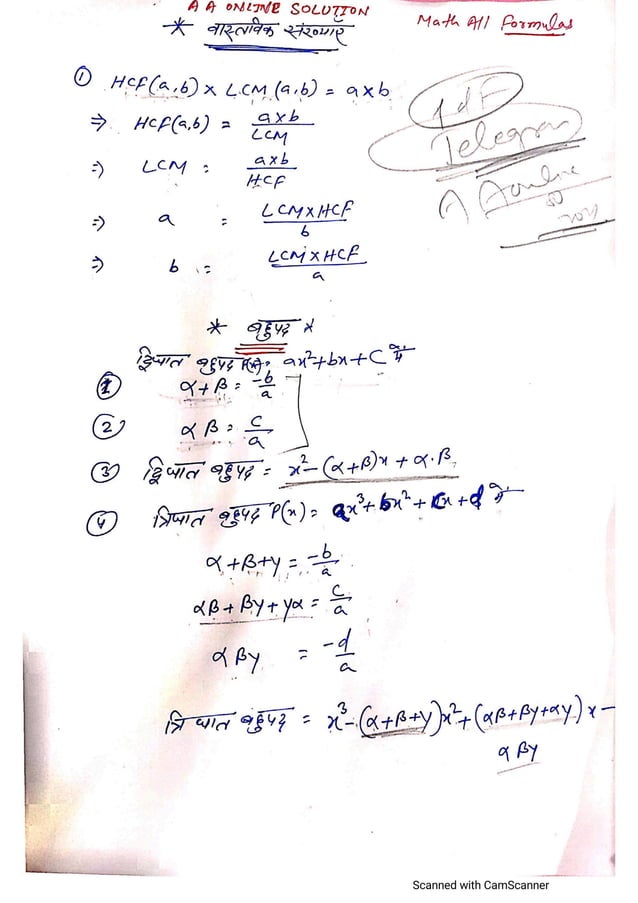 A A ONLINE SOLUTION
Math All Formulas
* वास्तविक संख्याएँ
① HCF(a,b) x LCM(a,b) = a x b
⇒ HCF(a,b) = a x b / LCM
⇒ LCM = a x b / HCF
⇒ a = LCM x HCF / b
⇒ b = LCM x HCF / a
Pdf
Telegram
A Aonline
* बहुपद *
द्विघात बहुपद P(x) = ax² + bx + C में
① α + β = -b/a
② α β = c/a
③ द्विघात बहुपद = x² - (α + β)x + α . β
④ त्रिघात बहुपद P(x) = ax³ + bx² + cx + d में
α + β + γ = -b/a
αβ + βγ + γα = c/a
α β γ = -d/a
त्रिघात बहुपद = x³ - (α + β + γ)x² + (αβ + βγ + αγ)x -
α β γ
Scanned with CamScanner